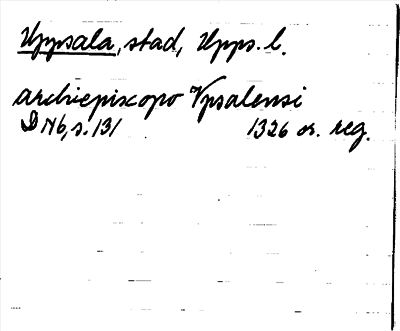 Uppsala, stad, Upps. l.
archiepiscopo Vpsalensi
D N6, s. 131 1326 or. reg.